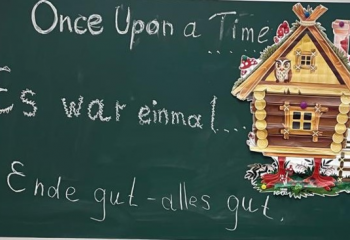 Once Upon a Time...
Es war einmal...
Ende gut - alles gut.